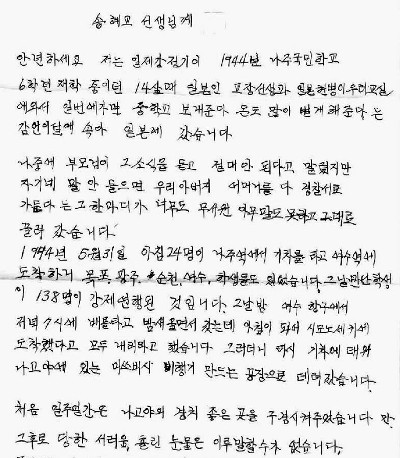 송혜교 선생님께
안녕하세요 저는 일제강점기인 1944년 나주국민학교
6학년 재학 중이던 14살때 일본인 교장선생과 일본헌병이 우리교실
에와서 일본에가면 중학교 보내준다 돈도 많이 벌게 해준다 는
감언이설에 속아 일본에 갔습니다
나중에 부모님이 그 소식을 듣고 절대안된다고 말렸지만
자기네 말 안 들으면 우리 아버지 어머니를 다 경찰서로
가둔다는 그 한마디가 너무도 무서워 아무말도 못하고 그대로
끌려 갔습니다
1944년 5月31일 아침 24명이 나주역에서 기차를 타고 여수역에
도착하니 목포, 광주, 순천, 여수, 학생들도 있었습니다. 그날 만난 학생
이 138명이 강제연행된 것입니다. 그날밤 여수 항구에서
저녁 7시에 배를타고 밤새 울면서 갔는데 아침이 되서 시모노세키에
도착했다고 모두 내리라고 했습니다 그러더니 역시 기차에 태워
나고야에 있는 미쓰비시 비행기 만드는 공장으로 데려갔습니다.
처음 일주일간은 나고야의 경치 좋은 곳을 구경시켜주었습니다
그후로 당한 서러움, 흘린 눈물은 이루말할수가 없습니다.